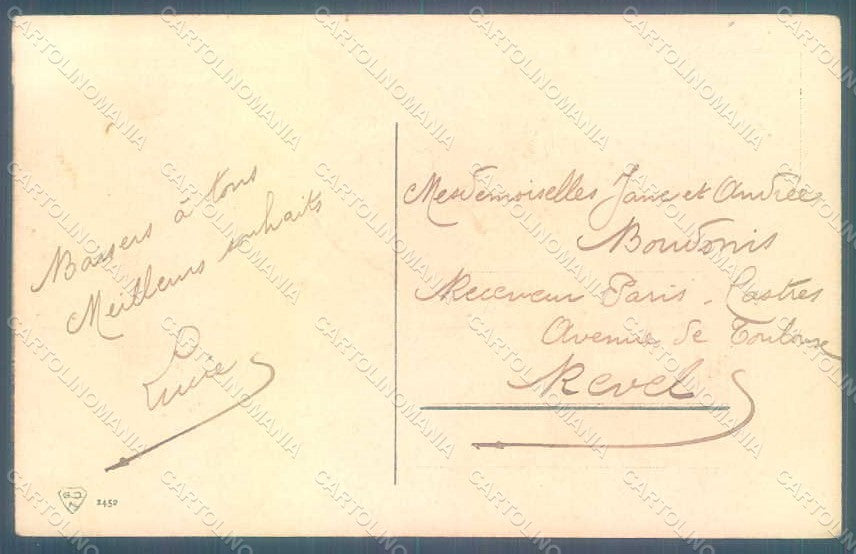 Baisers à tous
Meilleurs souhaits
Lucie
Mesdemoiselles Jane et Andrée
Boudonis
Receveur Paris - Castres
Avenue de Toulouse
Revel
2450
CARTOLINOMANIA